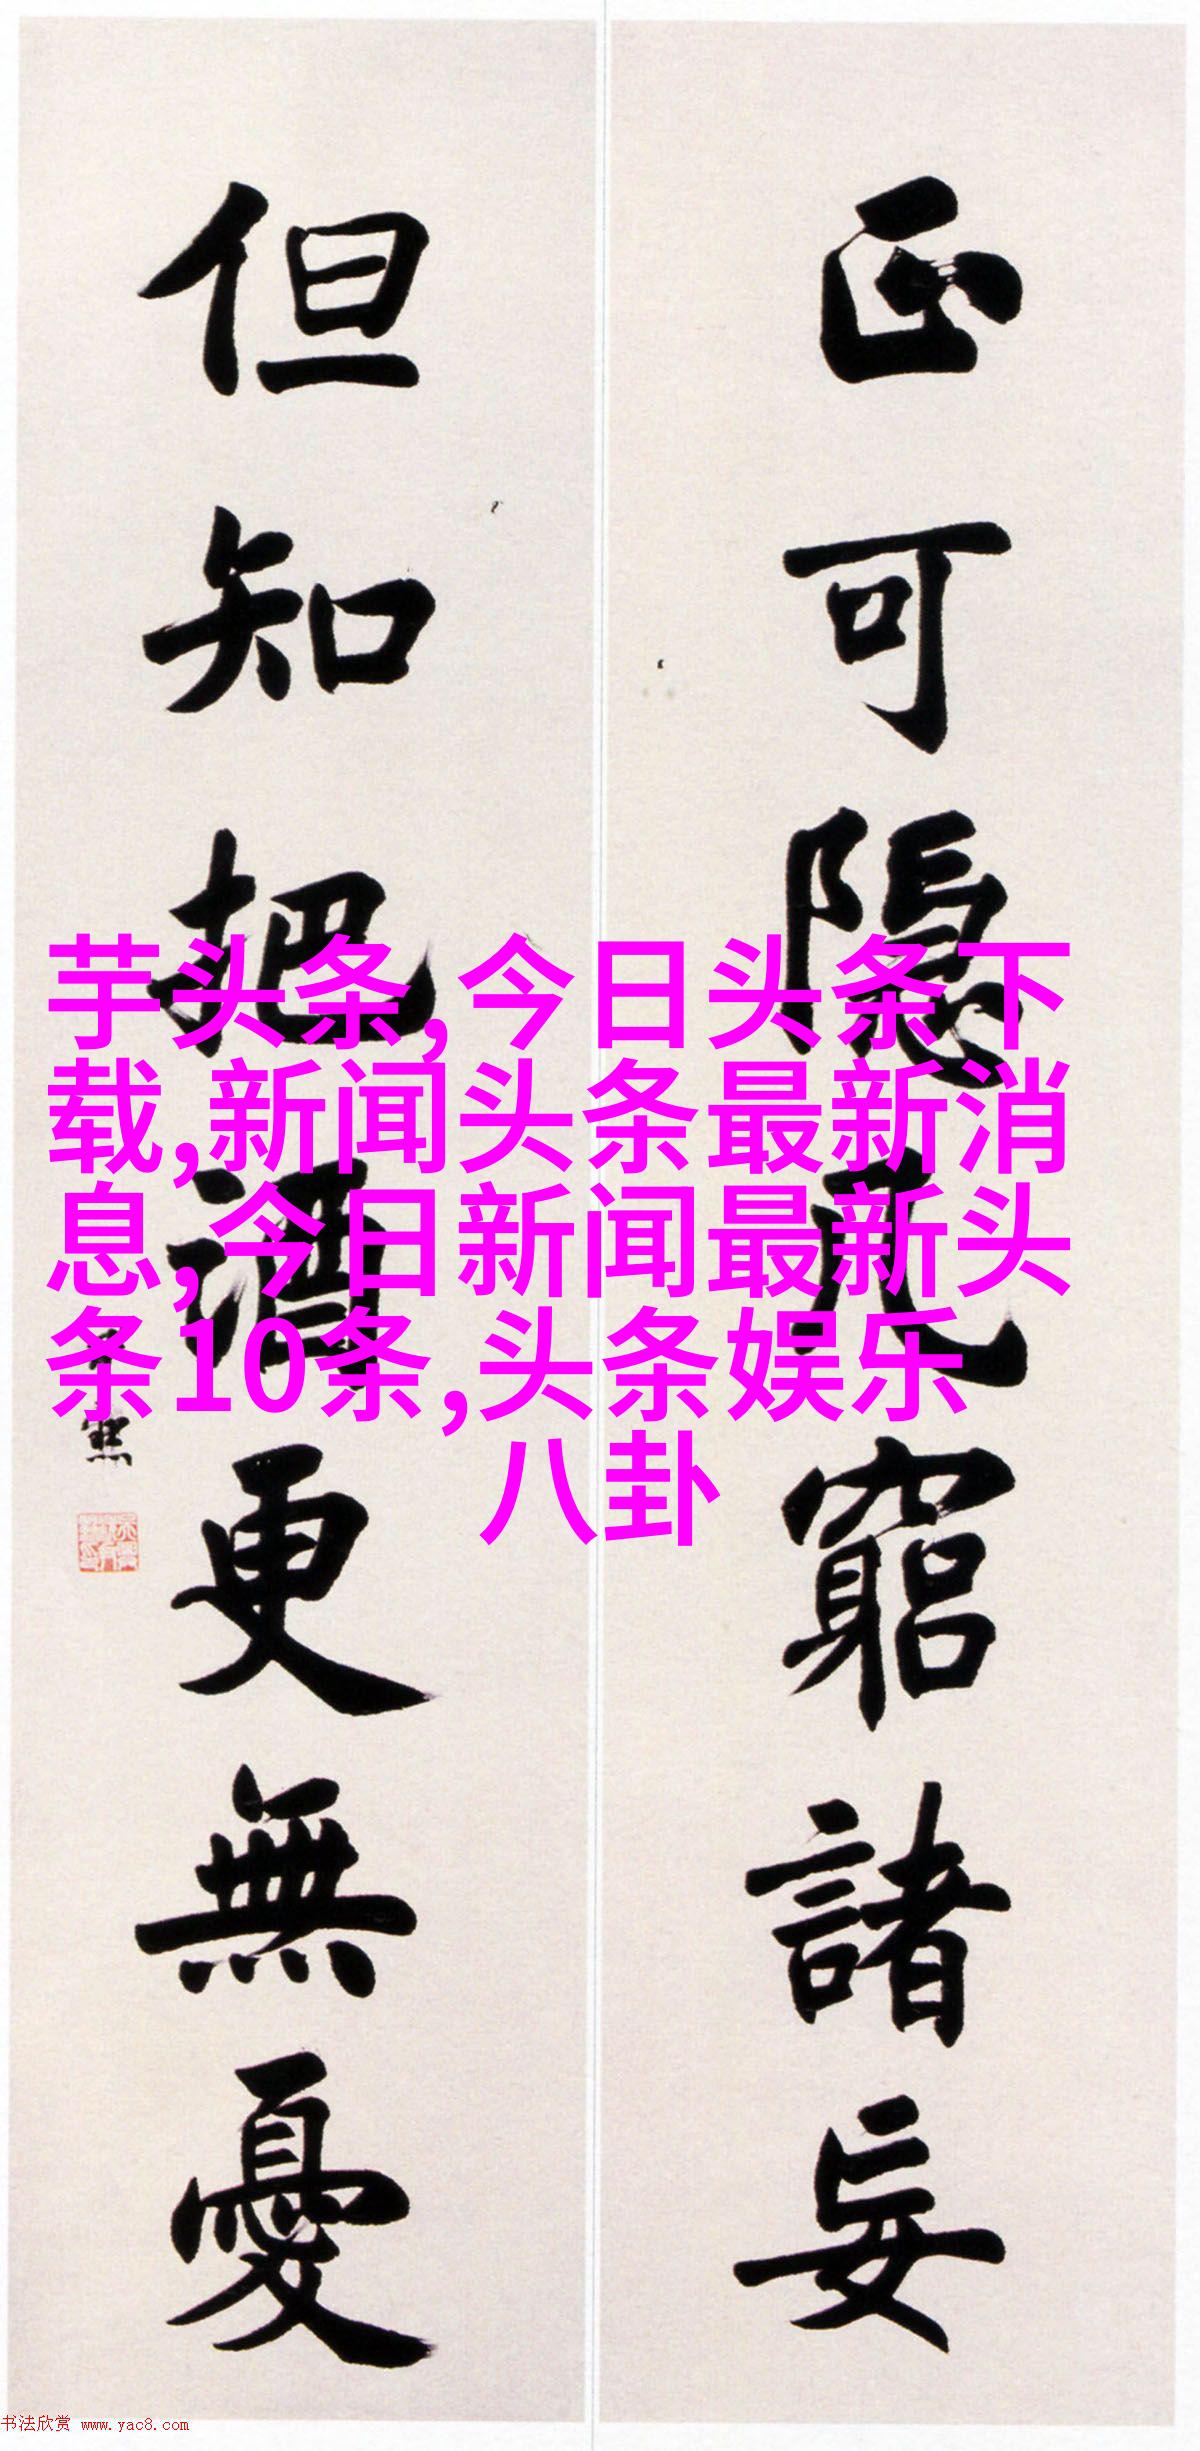 正可隱几窮諸妄
但知把酒更無憂
芋头条,今日头条下
载,新闻头条最新消
息,今日新闻最新头
条10条,头条娱乐
八卦
书法欣赏 www.yac8.com